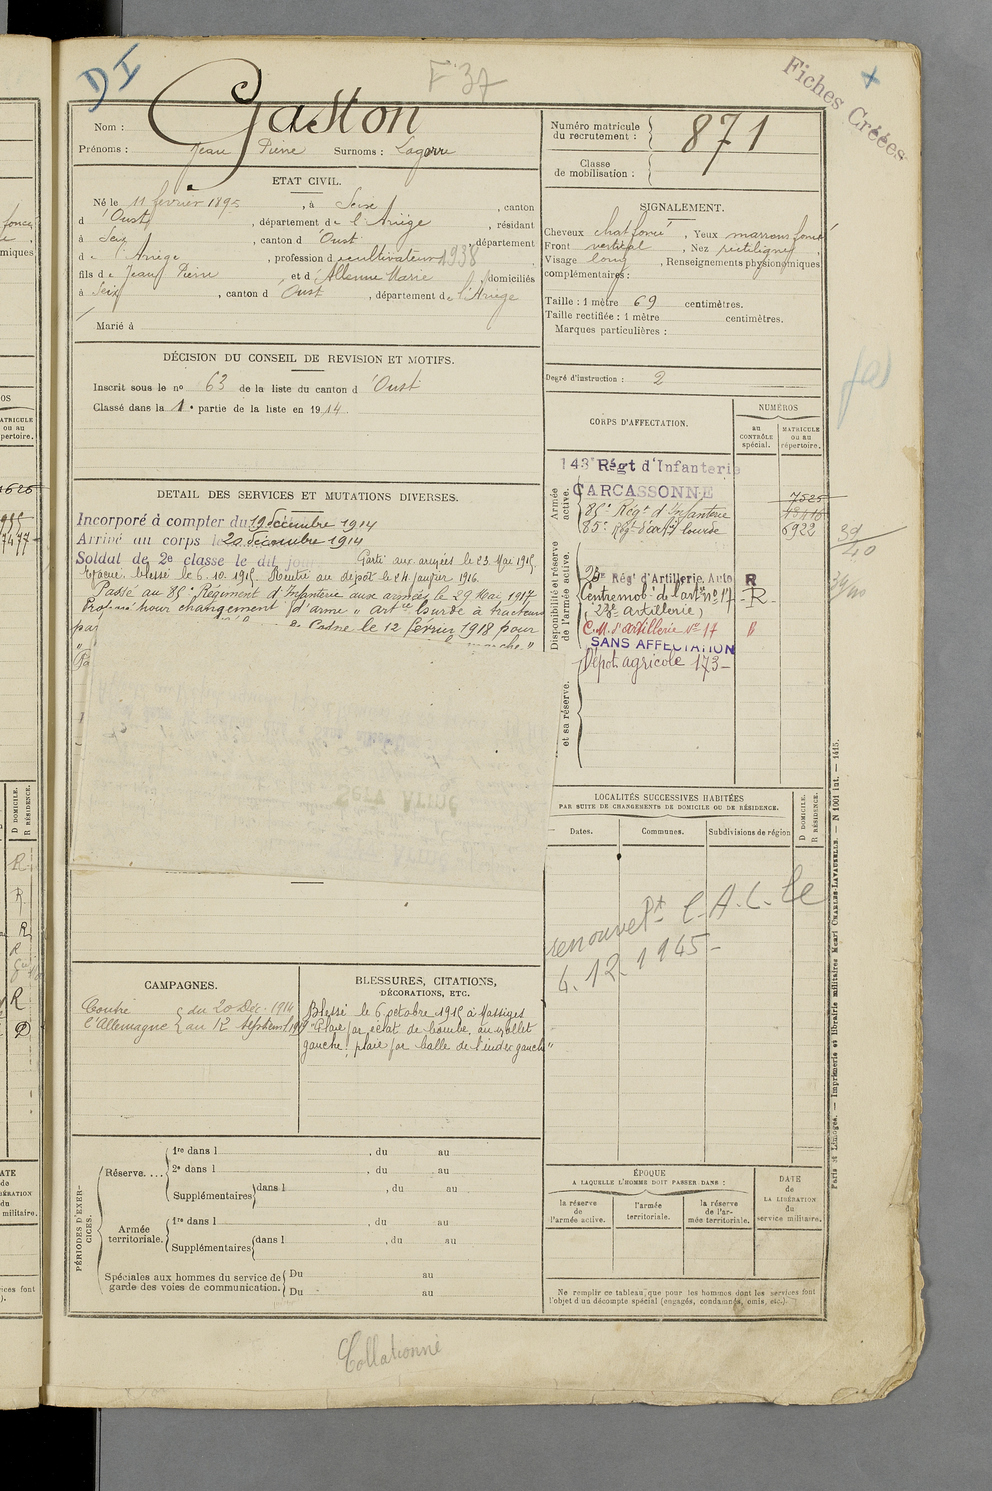 DI
F 37
Fiches Créées
Nom : Gaston
Prénoms : Jean Pierre Surnoms : Lagarre
Numéro matricule du recrutement : 871
Classe de mobilisation :
ETAT CIVIL.
Né le 11 février 1895, à Seix, canton
d'Oust, département de l'Ariège, résidant
à Seix, canton d'Oust, département
de l'Ariège, profession de cultivateur 1938
fils de Jean Pierre et d'Allenne Marie, domiciliés
à Seix, canton d'Oust, département de l'Ariège
Marié à
SIGNALEMENT.
Cheveux chat foncé, Yeux marrons foncé
Front vertical, Nez rectiligne
Visage long, Renseignements physionomiques
complémentaires :
Taille : 1 mètre 69 centimètres.
Taille rectifiée : 1 mètre centimètres.
Marques particulières :
Degré d'instruction : 2
DÉCISION DU CONSEIL DE REVISION ET MOTIFS.
Inscrit sous le nº 63 de la liste du canton d'Oust
Classé dans la 1e partie de la liste en 1914.
DETAIL DES SERVICES ET MUTATIONS DIVERSES.
Incorporé à compter du 19 Décembre 1914
Arrivé au corps le 20 Décembre 1914
Soldat de 2e classe le dit jour Parti aux armées le 23 Mai 1915.
Evacué blessé le 6.10.1915. Rentré au dépôt le 14 janvier 1916.
Passé au 85e Régiment d'Infanterie aux armées le 29 Mai 1917
Proposé pour changement d'arme " artie lourde à tracteurs
par
le 12 février 1918 pour
marche."
Serv Armé
CORPS D'AFFECTATION.
NUMÉROS
au CONTRÔLE spécial.
MATRICULE ou au répertoire.
Armée active.
143e Régt d'Infanterie
CARCASSONNE
7525
85e Régt d'Infanterie
85e Régt d'artie lourde 6922
Disponibilité et réserve de l'armée active.
23e Rég' d'Artillerie Auto R
Centre mob. de l'artie nº 17 R
(23e artillerie)
C.M. d'artillerie nº 17
SANS AFFECTATION
Dépôt agricole 173
et sa réserve.
39/40
39/40
LOCALITÉS SUCCESSIVES HABITÉES
PAR SUITE DE CHANGEMENTS DE DOMICILE OU DE RÉSIDENCE.
Dates. Communes. Subdivisions de région
D DOMICILE.
R RÉSIDENCE.
renouvelt C.A.C. le
4.12.1945
CAMPAGNES.
Contre l'Allemagne { du 20 Déc. 1914
au 12 Septembre 1919
BLESSURES, CITATIONS,
DÉCORATIONS, ETC.
Blessé le 6 octobre 1915 à Massiges
"Plaie par éclat de bombe, au mollet
gauche; plaie par balle de l'index gauche"
PÉRIODES D'EXERCICES.
Réserve....
1re dans l , du au
2e dans l , du au
Supplémentaires dans l , du au
Armée territoriale.
1re dans l , du au
Supplémentaires dans l , du au
Spéciales aux hommes du service de
garde des voies de communication.
Du au
Du au
ÉPOQUE
A LAQUELLE L'HOMME DOIT PASSER DANS :
la réserve de l'armée active.
l'armée territoriale.
la réserve de l'armée territoriale.
DATE de LA LIBÉRATION du service militaire.
Ne remplir ce tableau que pour les hommes dont les services font
l'objet d'un décompte spécial (engagés, condamnés, omis, etc.).
Paris et Limoges. — Imprimerie et librairie militaires Henri CHARLES-LAVAUZELLE. — N 1001 int. — 1415.
Collationné